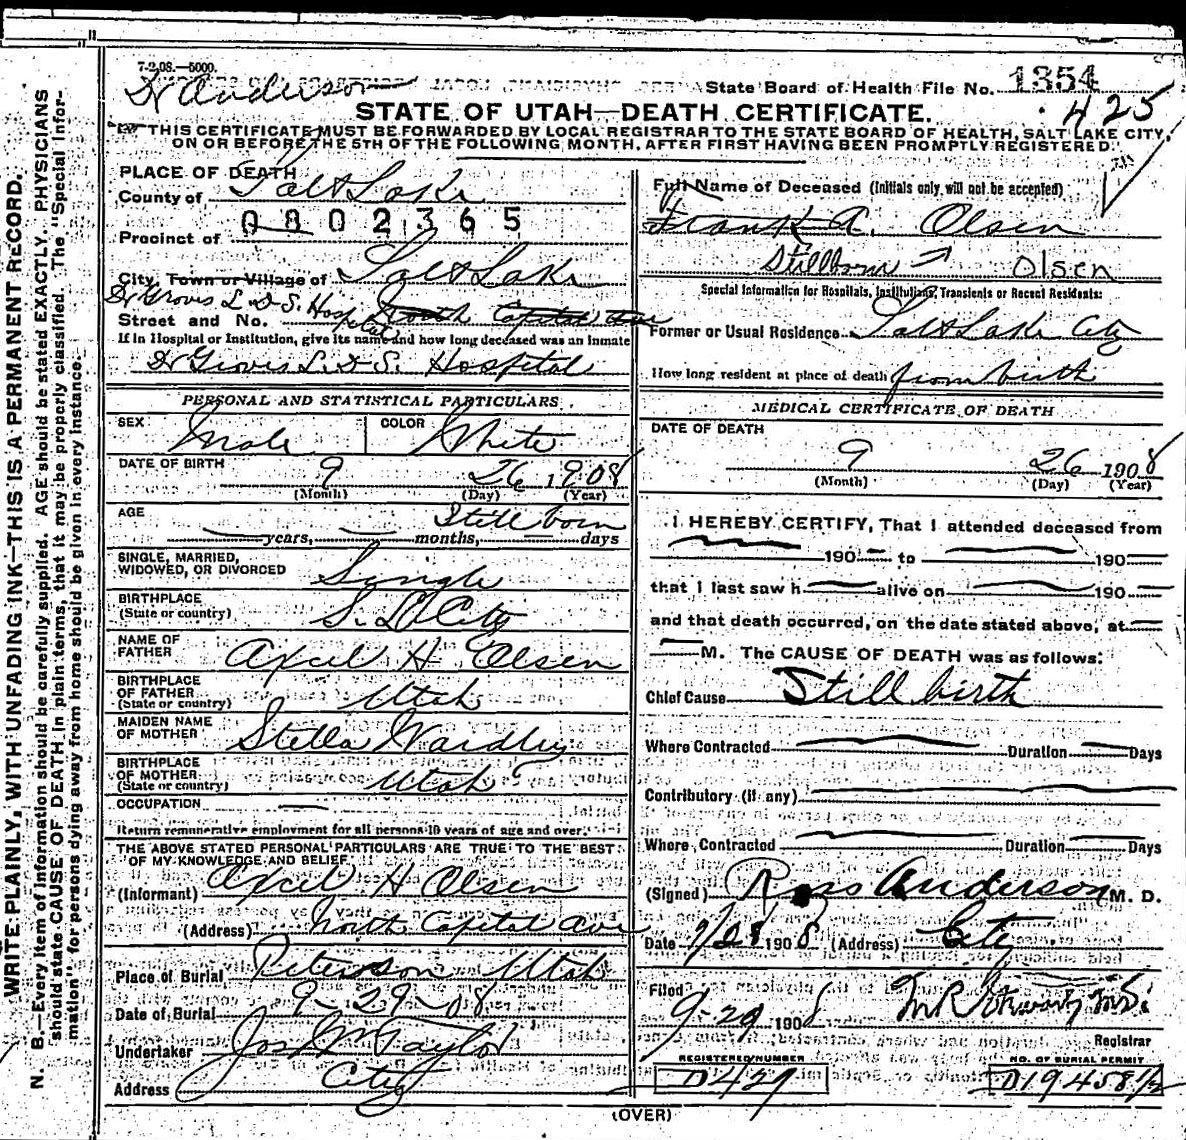 7-2-08.—5000.
Dr Anderson
State Board of Health File No. 1354
425
STATE OF UTAH—DEATH CERTIFICATE.
THIS CERTIFICATE MUST BE FORWARDED BY LOCAL REGISTRAR TO THE STATE BOARD OF HEALTH, SALT LAKE CITY,
ON OR BEFORE THE 5TH OF THE FOLLOWING MONTH, AFTER FIRST HAVING BEEN PROMPTLY REGISTERED.
WRITE PLAINLY, WITH UNFADING INK—THIS IS A PERMANENT RECORD.
N. B.—Every item of information should be carefully supplied. AGE should be stated EXACTLY. PHYSICIANS
should state CAUSE OF DEATH in plain terms, that it may be properly classified. The "Special Infor-
mation" for persons dying away from home should be given in every instance.
PLACE OF DEATH
County of Salt Lake
0802365
Precinct of
City, Town or Village of Salt Lake
Dr Groves L.D.S. Hospital
Street and No. North Capital Ave
If in Hospital or Institution, give its name and how long deceased was an inmate
Dr Groves L.D.S. Hospital
PERSONAL AND STATISTICAL PARTICULARS
SEX Male COLOR White
DATE OF BIRTH 9 26 1908
(Month) (Day) (Year)
AGE Stillborn
years, months, days
SINGLE, MARRIED,
WIDOWED, OR DIVORCED Single
BIRTHPLACE
(State or country) S. L. City
NAME OF
FATHER Axcel H Olsen
BIRTHPLACE
OF FATHER
(State or country) Utah
MAIDEN NAME
OF MOTHER Stella Wardley
BIRTHPLACE
OF MOTHER
(State or country) Utah
OCCUPATION —
Return remunerative employment for all persons 10 years of age and over.
THE ABOVE STATED PERSONAL PARTICULARS ARE TRUE TO THE BEST
OF MY KNOWLEDGE AND BELIEF
(Informant) Axcel H Olsen
(Address) North Capital Ave
Place of Burial Peterson Utah
Date of Burial 9-29-08
Undertaker Jos Wm Taylor
Address City
Full Name of Deceased (Initials only will not be accepted)
Frank A. Olsen
Stillborn Olsen
Special Information for Hospitals, Institutions, Transients or Recent Residents:
Former or Usual Residence Salt Lake City
How long resident at place of death from birth
MEDICAL CERTIFICATE OF DEATH
DATE OF DEATH
9 26 1908
(Month) (Day) (Year)
I HEREBY CERTIFY, That I attended deceased from
— 190— to — 190—
that I last saw h— alive on — 190—
and that death occurred, on the date stated above, at —
— M. The CAUSE OF DEATH was as follows:
Chief Cause Still birth
Where Contracted — Duration — Days
Contributory (if any) —
Where Contracted — Duration — Days
(Signed) Ross Anderson M. D.
Date 9/28 1908 (Address) City
Filed
9-29 1908
Registrar
REGISTERED NUMBER
D427
NO. OF BURIAL PERMIT
D19458½
(OVER)